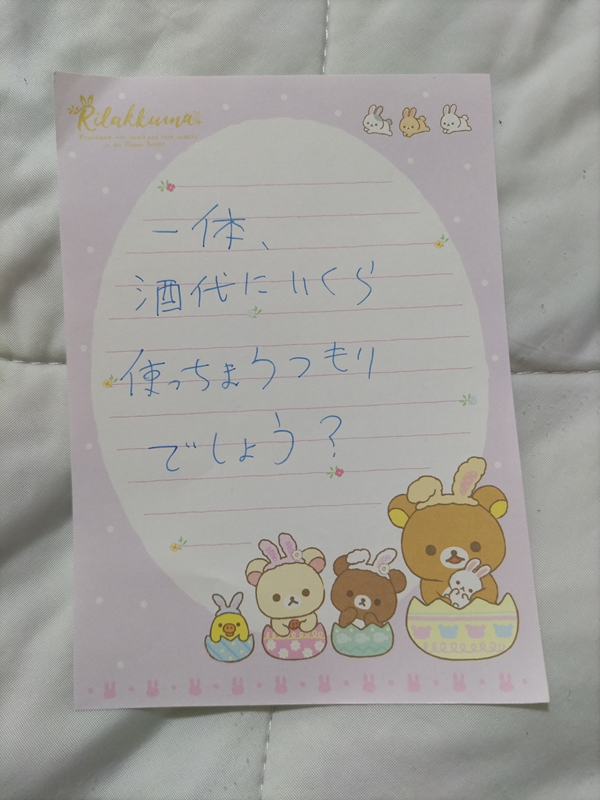 Rilakkuma
一体、
酒代にいくら
使っちまうつもり
でしょう?